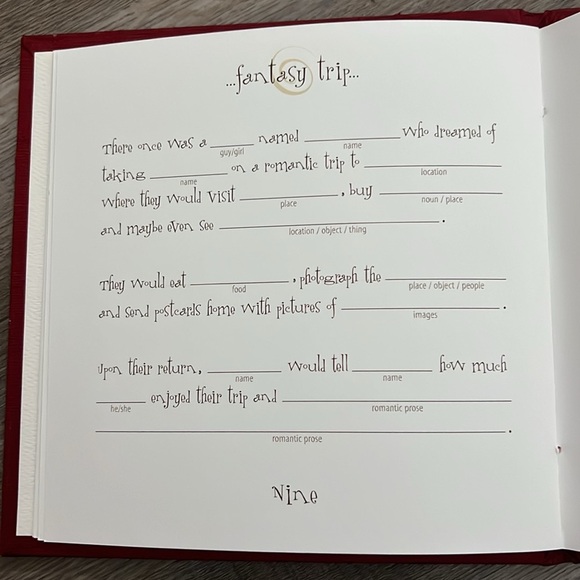 ...fantasy trip...
There once was a ______ named ______ who dreamed of
guy/girl name
taking ______ on a romantic trip to ______
name location
where they would visit ______, buy ______
place noun / place
and maybe even see ______.
location / object / thing
They would eat ______, photograph the ______
food place / object / people
and send postcards home with pictures of ______.
images
Upon their return, ______ would tell ______ how much
name name
______ enjoyed their trip and ______
he/she romantic prose
______.
romantic prose
Nine